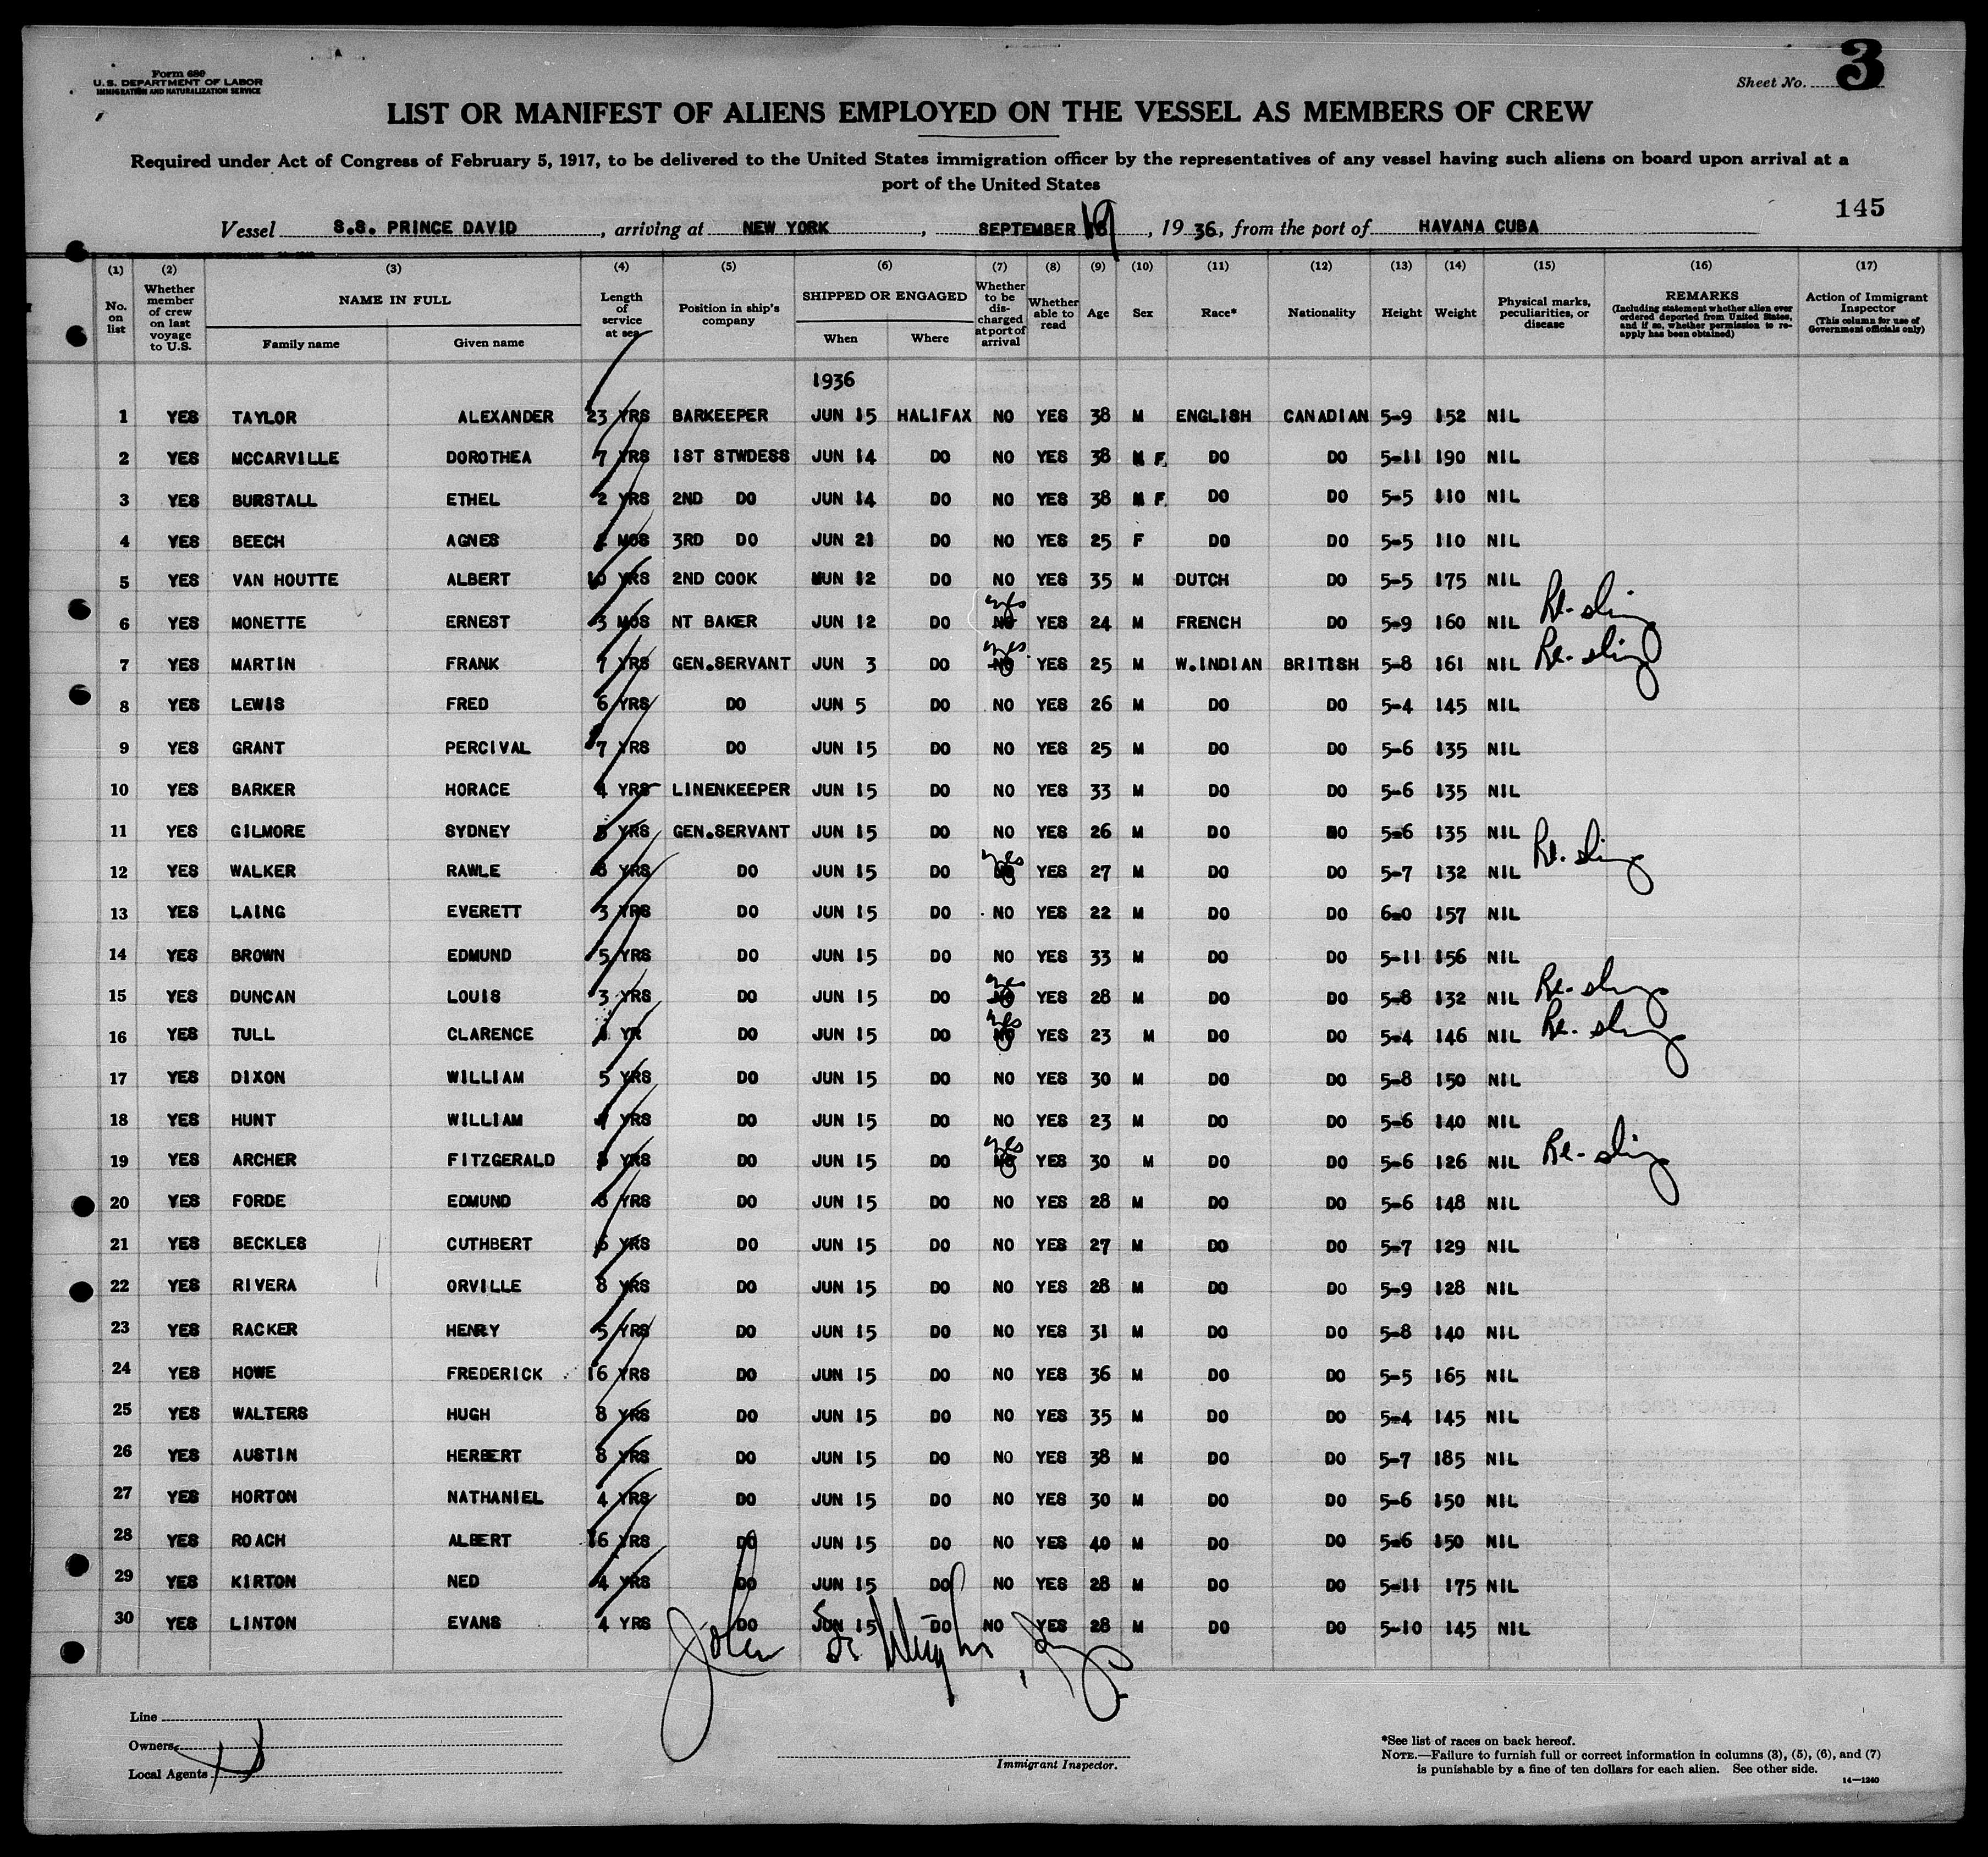 Form 680
U. S. DEPARTMENT OF LABOR
IMMIGRATION AND NATURALIZATION SERVICE
Sheet No. 3
LIST OR MANIFEST OF ALIENS EMPLOYED ON THE VESSEL AS MEMBERS OF CREW
Required under Act of Congress of February 5, 1917, to be delivered to the United States immigration officer by the representatives of any vessel having such aliens on board upon arrival at a
port of the United States
145
Vessel S.S. PRINCE DAVID, arriving at NEW YORK, SEPTEMBER 19, 1936, from the port of HAVANA CUBA
(1) (2) (3) (4) (5) (6) (7) (8) (9) (10) (11) (12) (13) (14) (15) (16) (17)
No. on list
Whether member of crew on last voyage to U.S.
NAME IN FULL
Family name Given name
Length of service at sea
Position in ship's company
SHIPPED OR ENGAGED
When Where
Whether to be discharged at port of arrival
Whether able to read
Age
Sex
Race*
Nationality
Height
Weight
Physical marks, peculiarities, or disease
REMARKS
(Including statement whether alien ever ordered deported from United States, and if so, whether permission to reapply has been obtained)
Action of Immigrant Inspector
(This column for use of Government officials only)
1936
1 YES TAYLOR ALEXANDER 23 YRS BARKEEPER JUN 15 HALIFAX NO YES 38 M ENGLISH CANADIAN 5-9 152 NIL
2 YES MCCARVILLE DOROTHEA 7 YRS 1ST STWDESS JUN 14 DO NO YES 38 F DO DO 5-11 190 NIL
3 YES BURSTALL ETHEL 2 YRS 2ND DO JUN 14 DO NO YES 38 F DO DO 5-5 110 NIL
4 YES BEECH AGNES MOS 3RD DO JUN 21 DO NO YES 25 F DO DO 5-5 110 NIL
5 YES VAN HOUTTE ALBERT 10 YRS 2ND COOK MUN 12 DO NO YES 35 M DUTCH DO 5-5 175 NIL
6 YES MONETTE ERNEST 3 MOS NT BAKER JUN 12 DO NO yes YES 24 M FRENCH DO 5-9 160 NIL
7 YES MARTIN FRANK 7 YRS GEN.SERVANT JUN 3 DO NO yes YES 25 M W.INDIAN BRITISH 5-8 161 NIL
8 YES LEWIS FRED 6 YRS DO JUN 5 DO NO YES 26 M DO DO 5-4 145 NIL
9 YES GRANT PERCIVAL 7 YRS DO JUN 15 DO NO YES 25 M DO DO 5-6 135 NIL
10 YES BARKER HORACE 4 YRS LINENKEEPER JUN 15 DO NO YES 33 M DO DO 5-6 135 NIL
11 YES GILMORE SYDNEY 5 YRS GEN.SERVANT JUN 15 DO NO YES 26 M DO DO 5-6 135 NIL
12 YES WALKER RAWLE 8 YRS DO JUN 15 DO NO yes YES 27 M DO DO 5-7 132 NIL
13 YES LAING EVERETT 3 YRS DO JUN 15 DO NO YES 22 M DO DO 6-0 157 NIL
14 YES BROWN EDMUND 5 YRS DO JUN 15 DO NO YES 33 M DO DO 5-11 156 NIL
15 YES DUNCAN LOUIS 3 YRS DO JUN 15 DO NO yes YES 28 M DO DO 5-8 132 NIL
16 YES TULL CLARENCE YR DO JUN 15 DO NO yes YES 23 M DO DO 5-4 146 NIL
17 YES DIXON WILLIAM 5 YRS DO JUN 15 DO NO YES 30 M DO DO 5-8 150 NIL
18 YES HUNT WILLIAM YRS DO JUN 15 DO NO YES 23 M DO DO 5-6 140 NIL
19 YES ARCHER FITZGERALD YRS DO JUN 15 DO NO yes YES 30 M DO DO 5-6 126 NIL
20 YES FORDE EDMUND YRS DO JUN 15 DO NO YES 28 M DO DO 5-6 148 NIL
21 YES BECKLES CUTHBERT YRS DO JUN 15 DO NO YES 27 M DO DO 5-7 129 NIL
22 YES RIVERA ORVILLE 8 YRS DO JUN 15 DO NO YES 28 M DO DO 5-9 128 NIL
23 YES RACKER HENRY 5 YRS DO JUN 15 DO NO YES 31 M DO DO 5-8 140 NIL
24 YES HOWE FREDERICK 16 YRS DO JUN 15 DO NO YES 36 M DO DO 5-5 165 NIL
25 YES WALTERS HUGH 8 YRS DO JUN 15 DO NO YES 35 M DO DO 5-4 145 NIL
26 YES AUSTIN HERBERT 8 YRS DO JUN 15 DO NO YES 38 M DO DO 5-7 185 NIL
27 YES HORTON NATHANIEL 4 YRS DO JUN 15 DO NO YES 30 M DO DO 5-6 150 NIL
28 YES ROACH ALBERT 16 YRS DO JUN 15 DO NO YES 40 M DO DO 5-6 150 NIL
29 YES KIRTON NED 4 YRS DO JUN 15 DO NO YES 28 M DO DO 5-11 175 NIL
30 YES LINTON EVANS 4 YRS DO JUN 15 DO NO YES 28 M DO DO 5-10 145 NIL
John
Line
Owners
Local Agents
Immigrant Inspector.
*See list of races on back hereof.
NOTE.—Failure to furnish full or correct information in columns (3), (5), (6), and (7)
is punishable by a fine of ten dollars for each alien. See other side.
14—1240